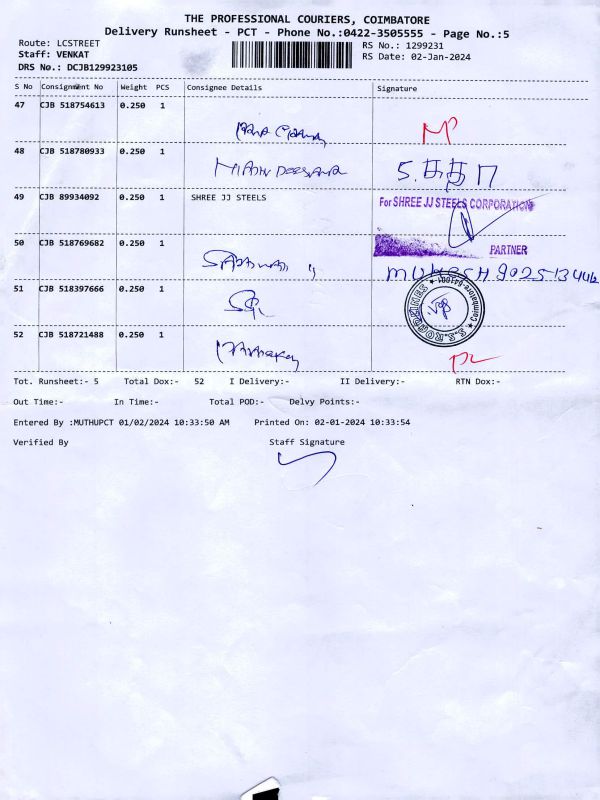 THE PROFESSIONAL COURIERS, COIMBATORE
Delivery Runsheet - PCT - Phone No.:0422-3505555 - Page No.:5
Route: LCSTREET
RS No.: 1299231
Staff: VENKAT
RS Date: 02-Jan-2024
DRS No.: DCJB129923105
S No Consignment No Weight PCS Consignee Details Signature
47 CJB 518754613 0.250 1
48 CJB 518780933 0.250 1
49 CJB 89934092 0.250 1 SHREE JJ STEELS
For SHREE JJ STEELS CORPORATION
PARTNER
50 CJB 518769682 0.250 1
MUKESH
51 CJB 518397666 0.250 1
52 CJB 518721488 0.250 1
Tot. Runsheet:- 5 Total Dox:- 52 I Delivery:- II Delivery:- RTN Dox:-
Out Time:- In Time:- Total POD:- Delvy Points:-
Entered By :MUTHUPCT 01/02/2024 10:33:50 AM Printed On: 02-01-2024 10:33:54
Verified By Staff Signature